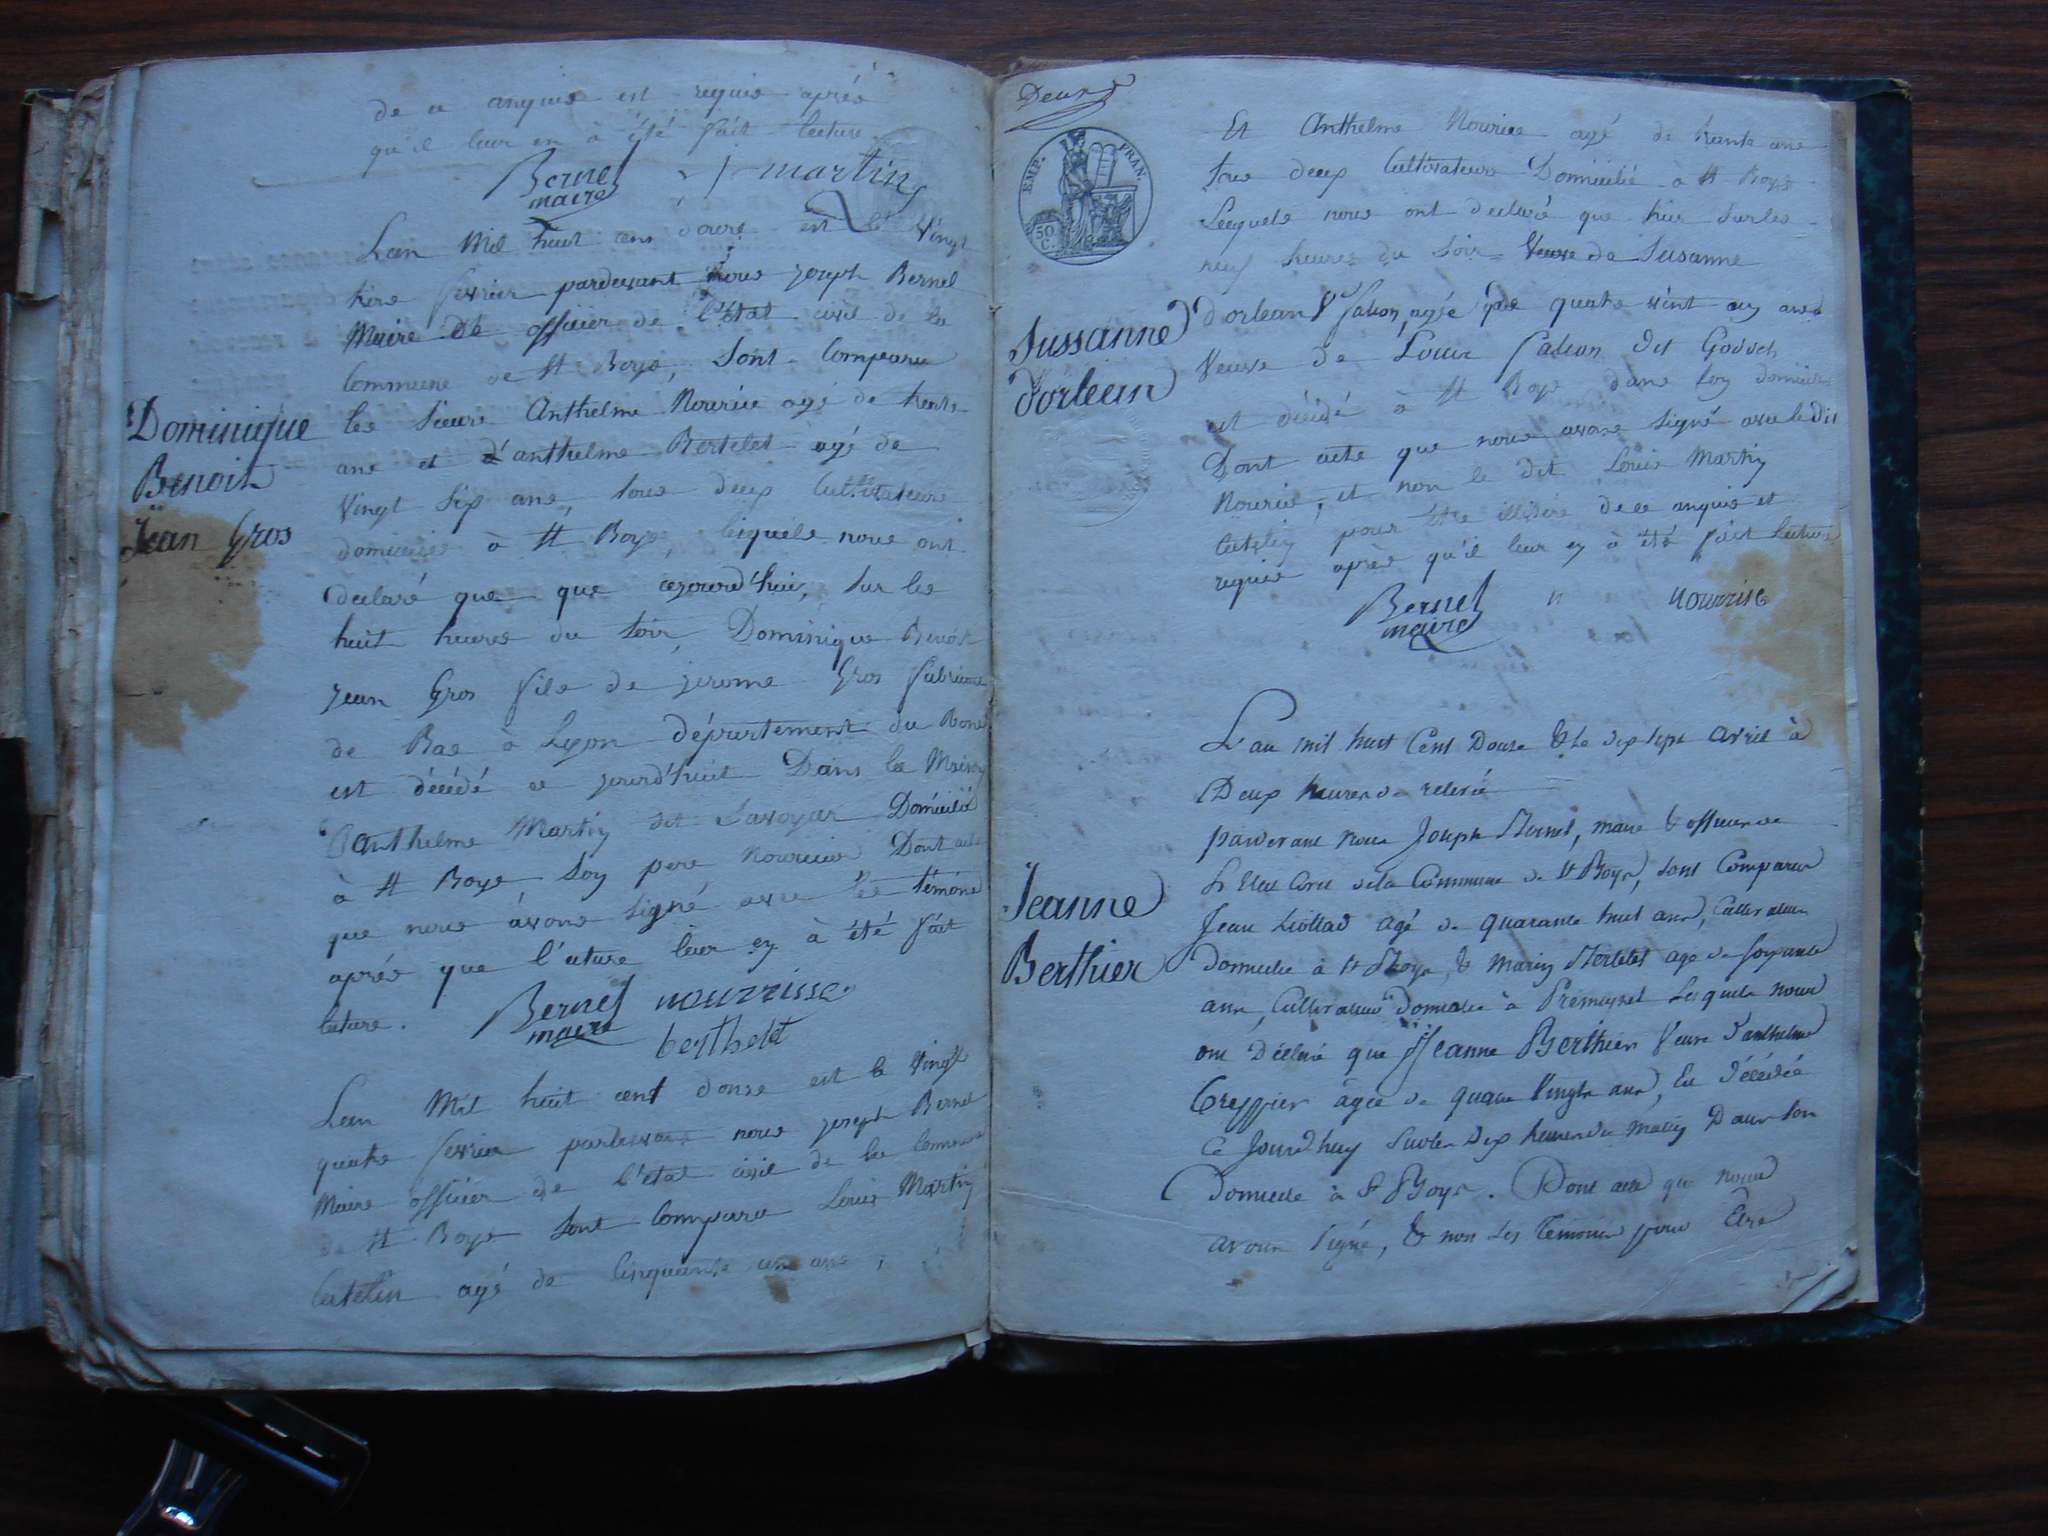 de ce enquis et requis après
qu'il leur en à été fait lecture
Bernel martin
maire
Lan Mil huit cens douze est le Vingt
hire fevrier pardevant nous joseph Bernel
Maire officier de l'état civil de la
Commune de St Boys, sont Comparu
Dominique
Benoit
Jean Gros
les sieurs Anthelme Nourice agé de trente
ans et d'anthelme Bertelet agé de
Vingt six ans, tous deux Cultivateurs
domicilié à St Boys, lesquels nous ont
declaré que que cejourd'hui, sur les
huit heures du soir, Dominique Benoit
jean Gros fils de jerome Gros fabricant
de Bas à Lyon département du Rone
est décédé ce jourd'huit Dans la Maison
D'anthelme Martin dit Savoyar Domicilié
à St Boys, son pere Nouricier Dont acte
que nous avons signé avec les témons
après que l'ecture leur en à été fait
lecture. Bernel nourrisse
maire berthelet
Lan Mil huit cent douze est le Vingt
quatre fevrier pardevant nous joseph Bernel
Maire officier de l'état civil de la Commune
de St Boys sont Comparu Louis Martin
Catelin agé de Cinquante un ans,
Deux
EMP. FRAN.
50 C.
Et Anthelme Nourice agé de trente ans
tous deux Cultivateurs Domicilié à St Boys
Lesquels nous ont declaré que hier sur les
neuf heures du soir Veuve de Susanne
Sussanne
Dorlean
dorlean Ve falion, agée de quatre vint un ans
Veuve de Louis falion dit Godoch
est décédé à St Boys dans son domicile
Dont acte que nous avons signé avec le dit
Nourice, et non le dit Louis Martin
Catelin pour être illitéré de ce enquis et
requis après qu'il leur en à été fait lecture
Bernel nourrise
maire
L'an mil huit Cent Douze & le dix sept avril à
Deux heures de relevée
pardevant nous Joseph Bernel, maire & officier de
L'Etat Civil de la Commune de St Boys, sont Comparus
Jeanne
Berthier
Jean Liottad agé de quarante huit ans, Cultivateur
domicilié à St Boys, & Marin Bertelet agé de soixante
ans, Cultivateur domicilié à Premeysel Lesquels nous
ont Déclaré que Jeanne Berthier Veuve d'anthelme
Creppier agée de quatre Vingts ans, Est décédée
Ce Jourd'huy sur les dix heures du matin Dans son
Domicile à St Boys. Dont acte que nous
avons signé, & non les Témoins pour Etre